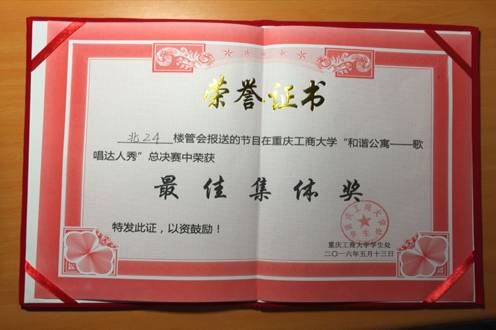 荣誉证书
北24 楼管会报送的节目在重庆工商大学“和谐公寓——歌
唱达人秀”总决赛中荣获
最佳集体奖
特发此证，以资鼓励！
重庆工商大学
学生处
重庆工商大学学生处
二〇一六年五月十三日